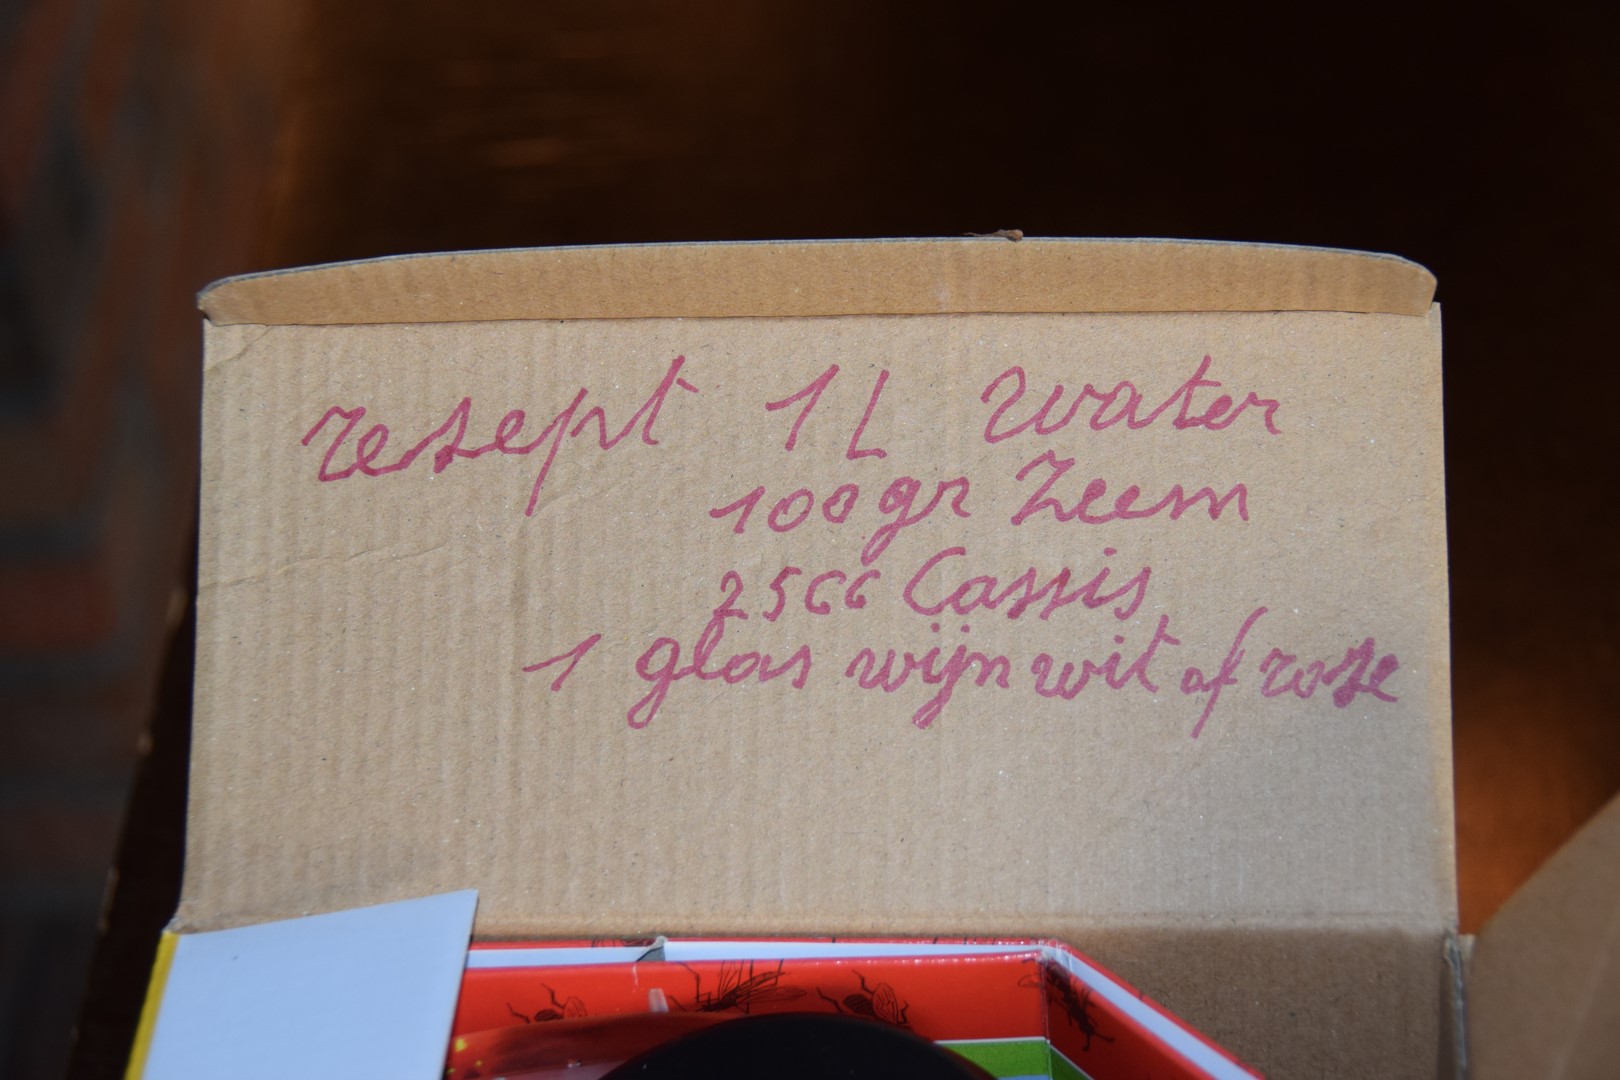 resept 1L water
100gr Zeem
25cc Cassis
1 glas wijn wit of rose